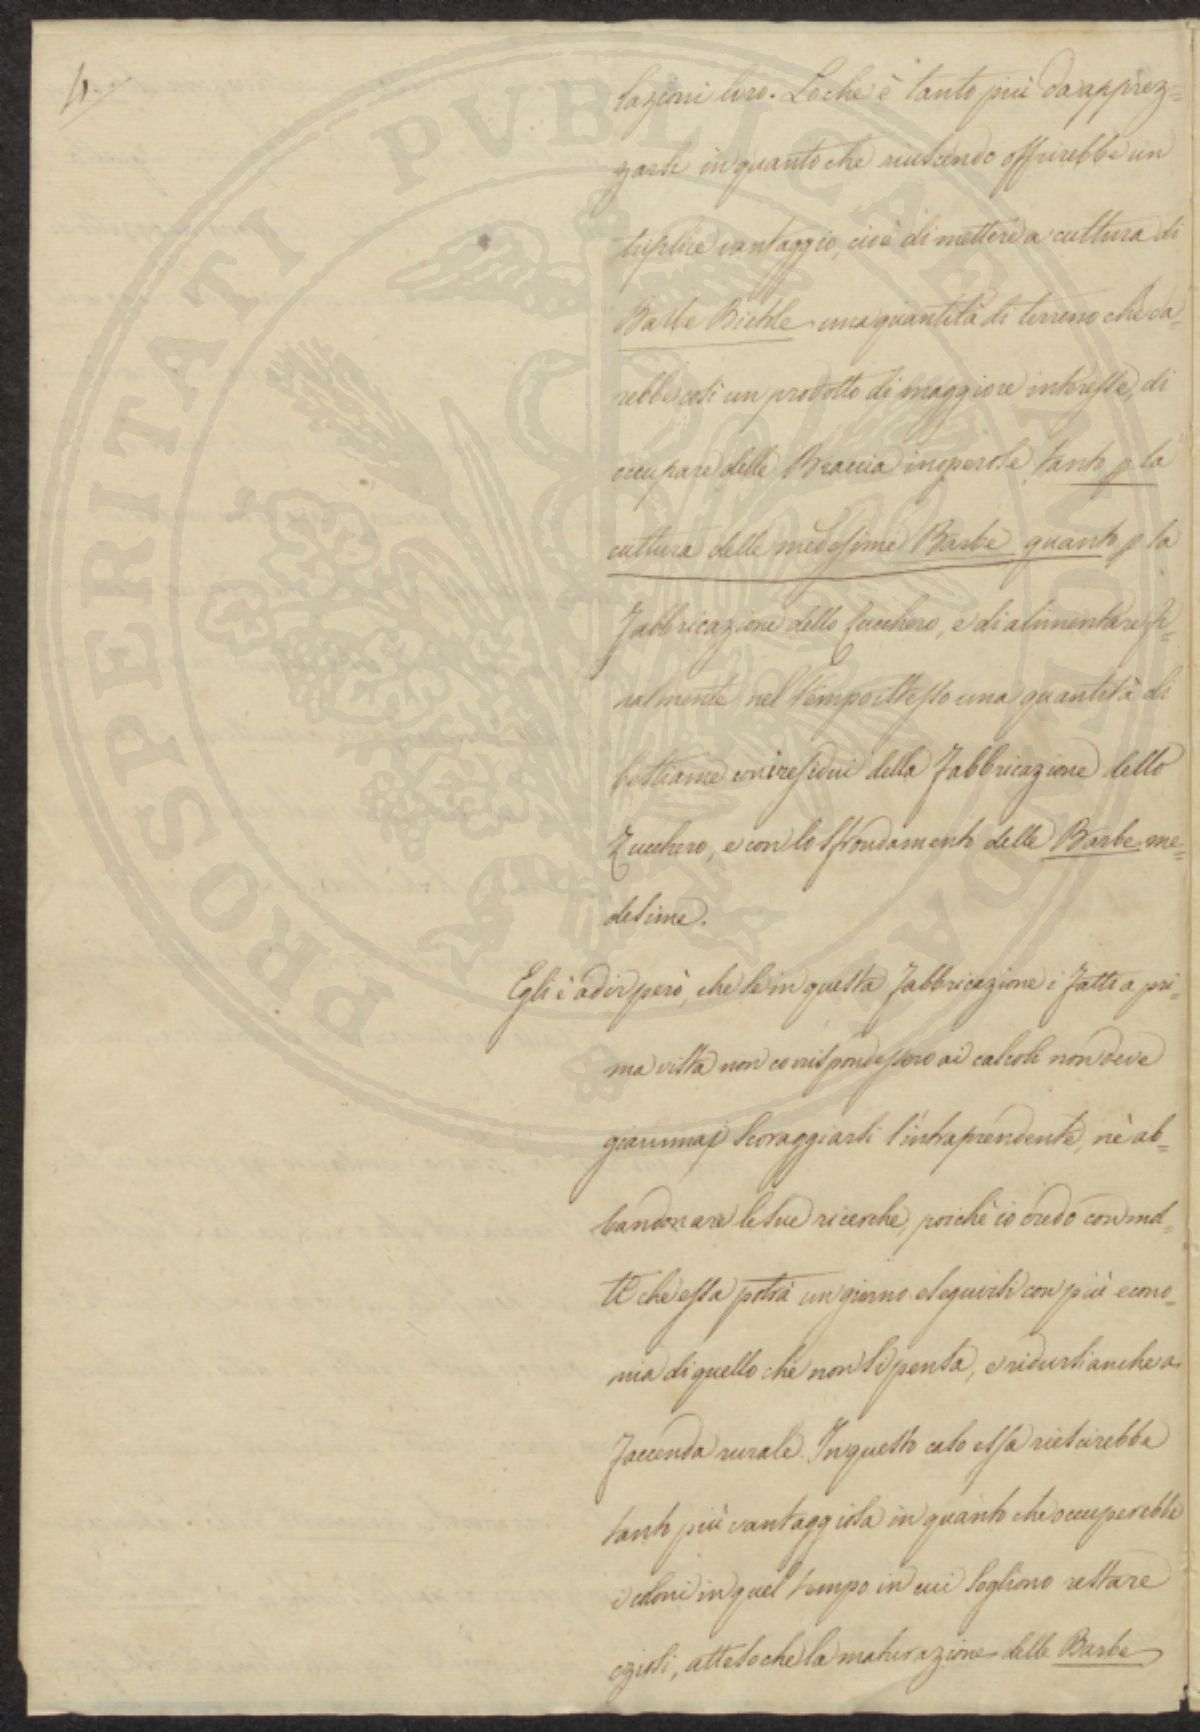 4.
lazioni loro. Loche è tanto più da apprez=
zarsi in quanto che riuscendo offrirebbe un
triplice vantaggio, cioè di mettere a cultura di
Barbe Bietole una quantità di terreno che da=
rebbe così un prodotto di maggiore interesse, di
occupare delle Braccia inoperose, tanto p la
cultura delle medesime Barbe quanto p la
Fabbricazione dello Zucchero, e di alimentare fi=
nalmente nel tempo istesso una quantità di
bestiame con i residui della Fabbricazione dello
Zucchero, e con lo sfrondamento delle Barbe me=
desime.
Egli è a dir però, che se in questa Fabbricazione i Fatti a pri=
ma vista non corrispondessero ai calcoli non deve
giammai scoraggiarsi l'intraprendente, nè ab=
bandonare le sue ricerche, poichè io credo con mol=
ti che essa potrà un giorno eseguirsi con più econo=
mia di quello che non si pensa, e ridursi anche a
Faccenda rurale. In questo caso essa riescirebbe
tanto più vantaggiosa in quanto che occuperebbe
i coloni in quel tempo in cui sogliono restare
oziosi, attesoche la maturazione delle Barbe
PROSPERITATI PVBLICAE AVGENDAE